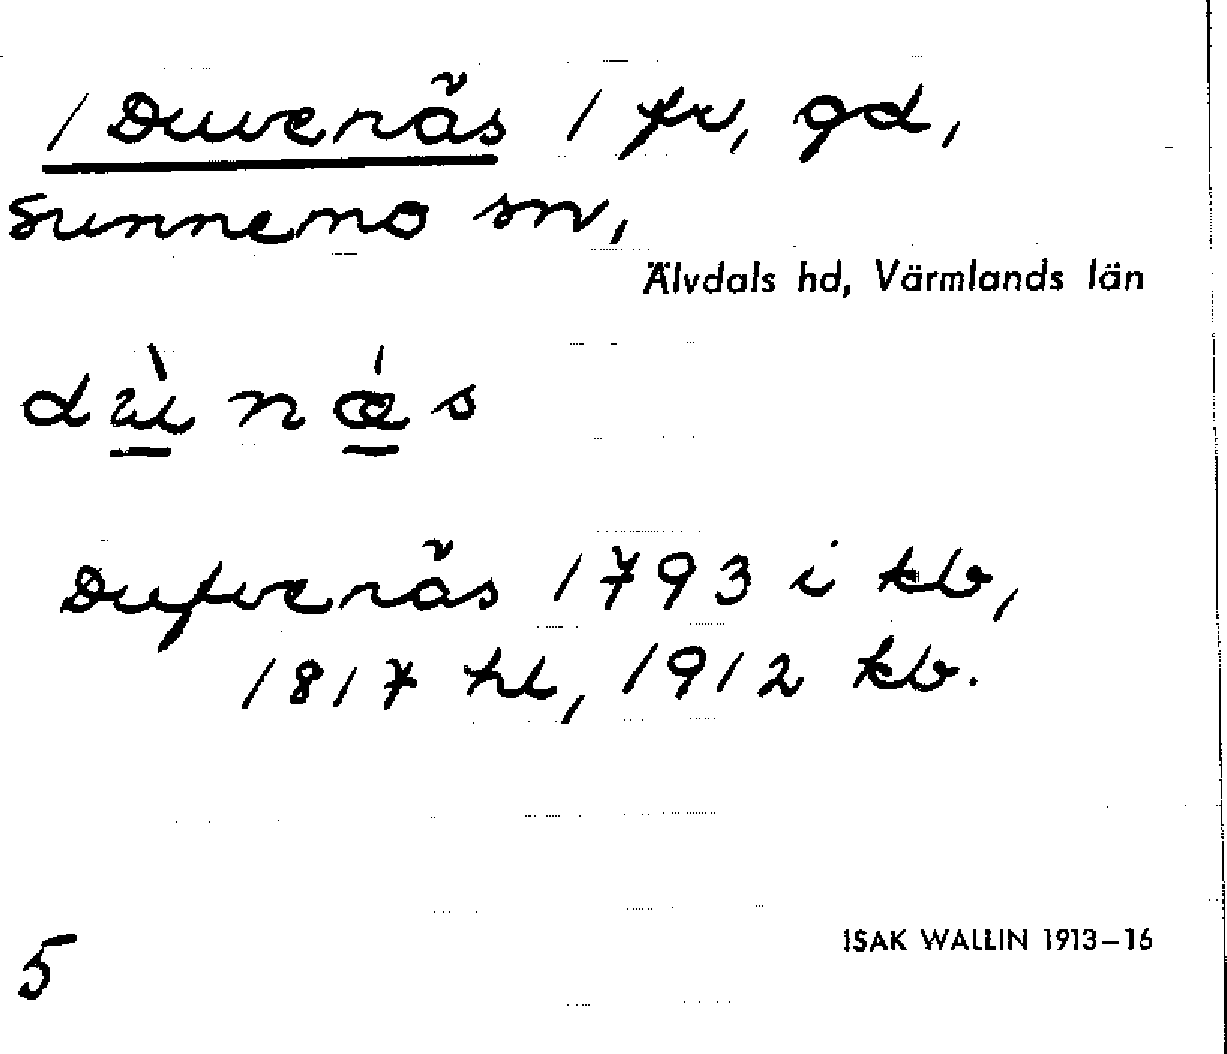 / Duvenäs / fr, gd,
Sunnemo sn,
Älvdals hd, Värmlands län
Dufvenäs 1793 i kb,
1817 hl, 1912 kb.
ISAK WALLIN 1913–16
5